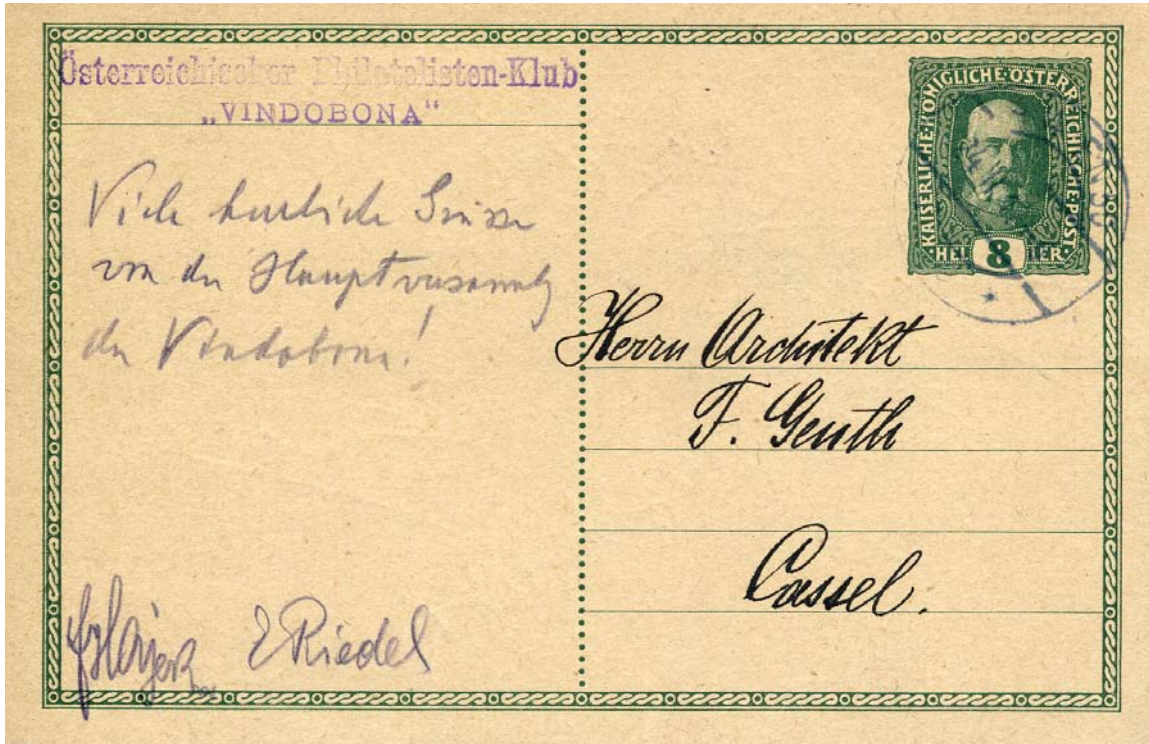 Österreichischer Philatelisten-Klub
„VINDOBONA“
Viele herzliche Grüsse
von der Hauptversamml
der Vindobona!
E Riedel
KAISERLICHE·KÖNIGLICHE·ÖSTERREICHISCHE·POST
HELLER
8
Herrn Architekt
F. Genth
Cassel.